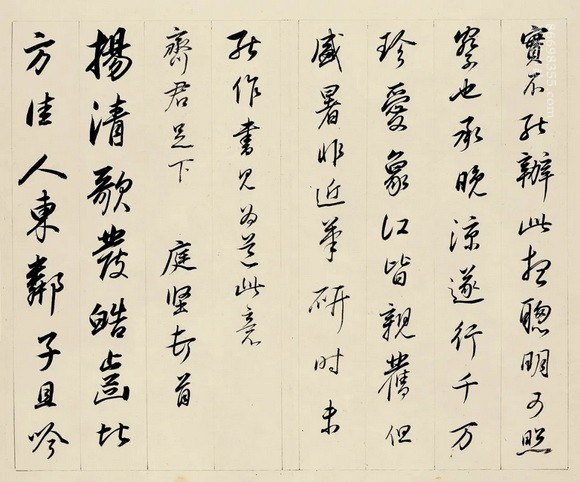 實不能辦此想聰明可照
察也承晚涼遂行千万
珍愛象江皆親舊但
盛暑非近筆研時未
能作書見為道此意
齊君足下 庭堅頓首
揚清歌發皓齒北
方佳人東鄰子且吟